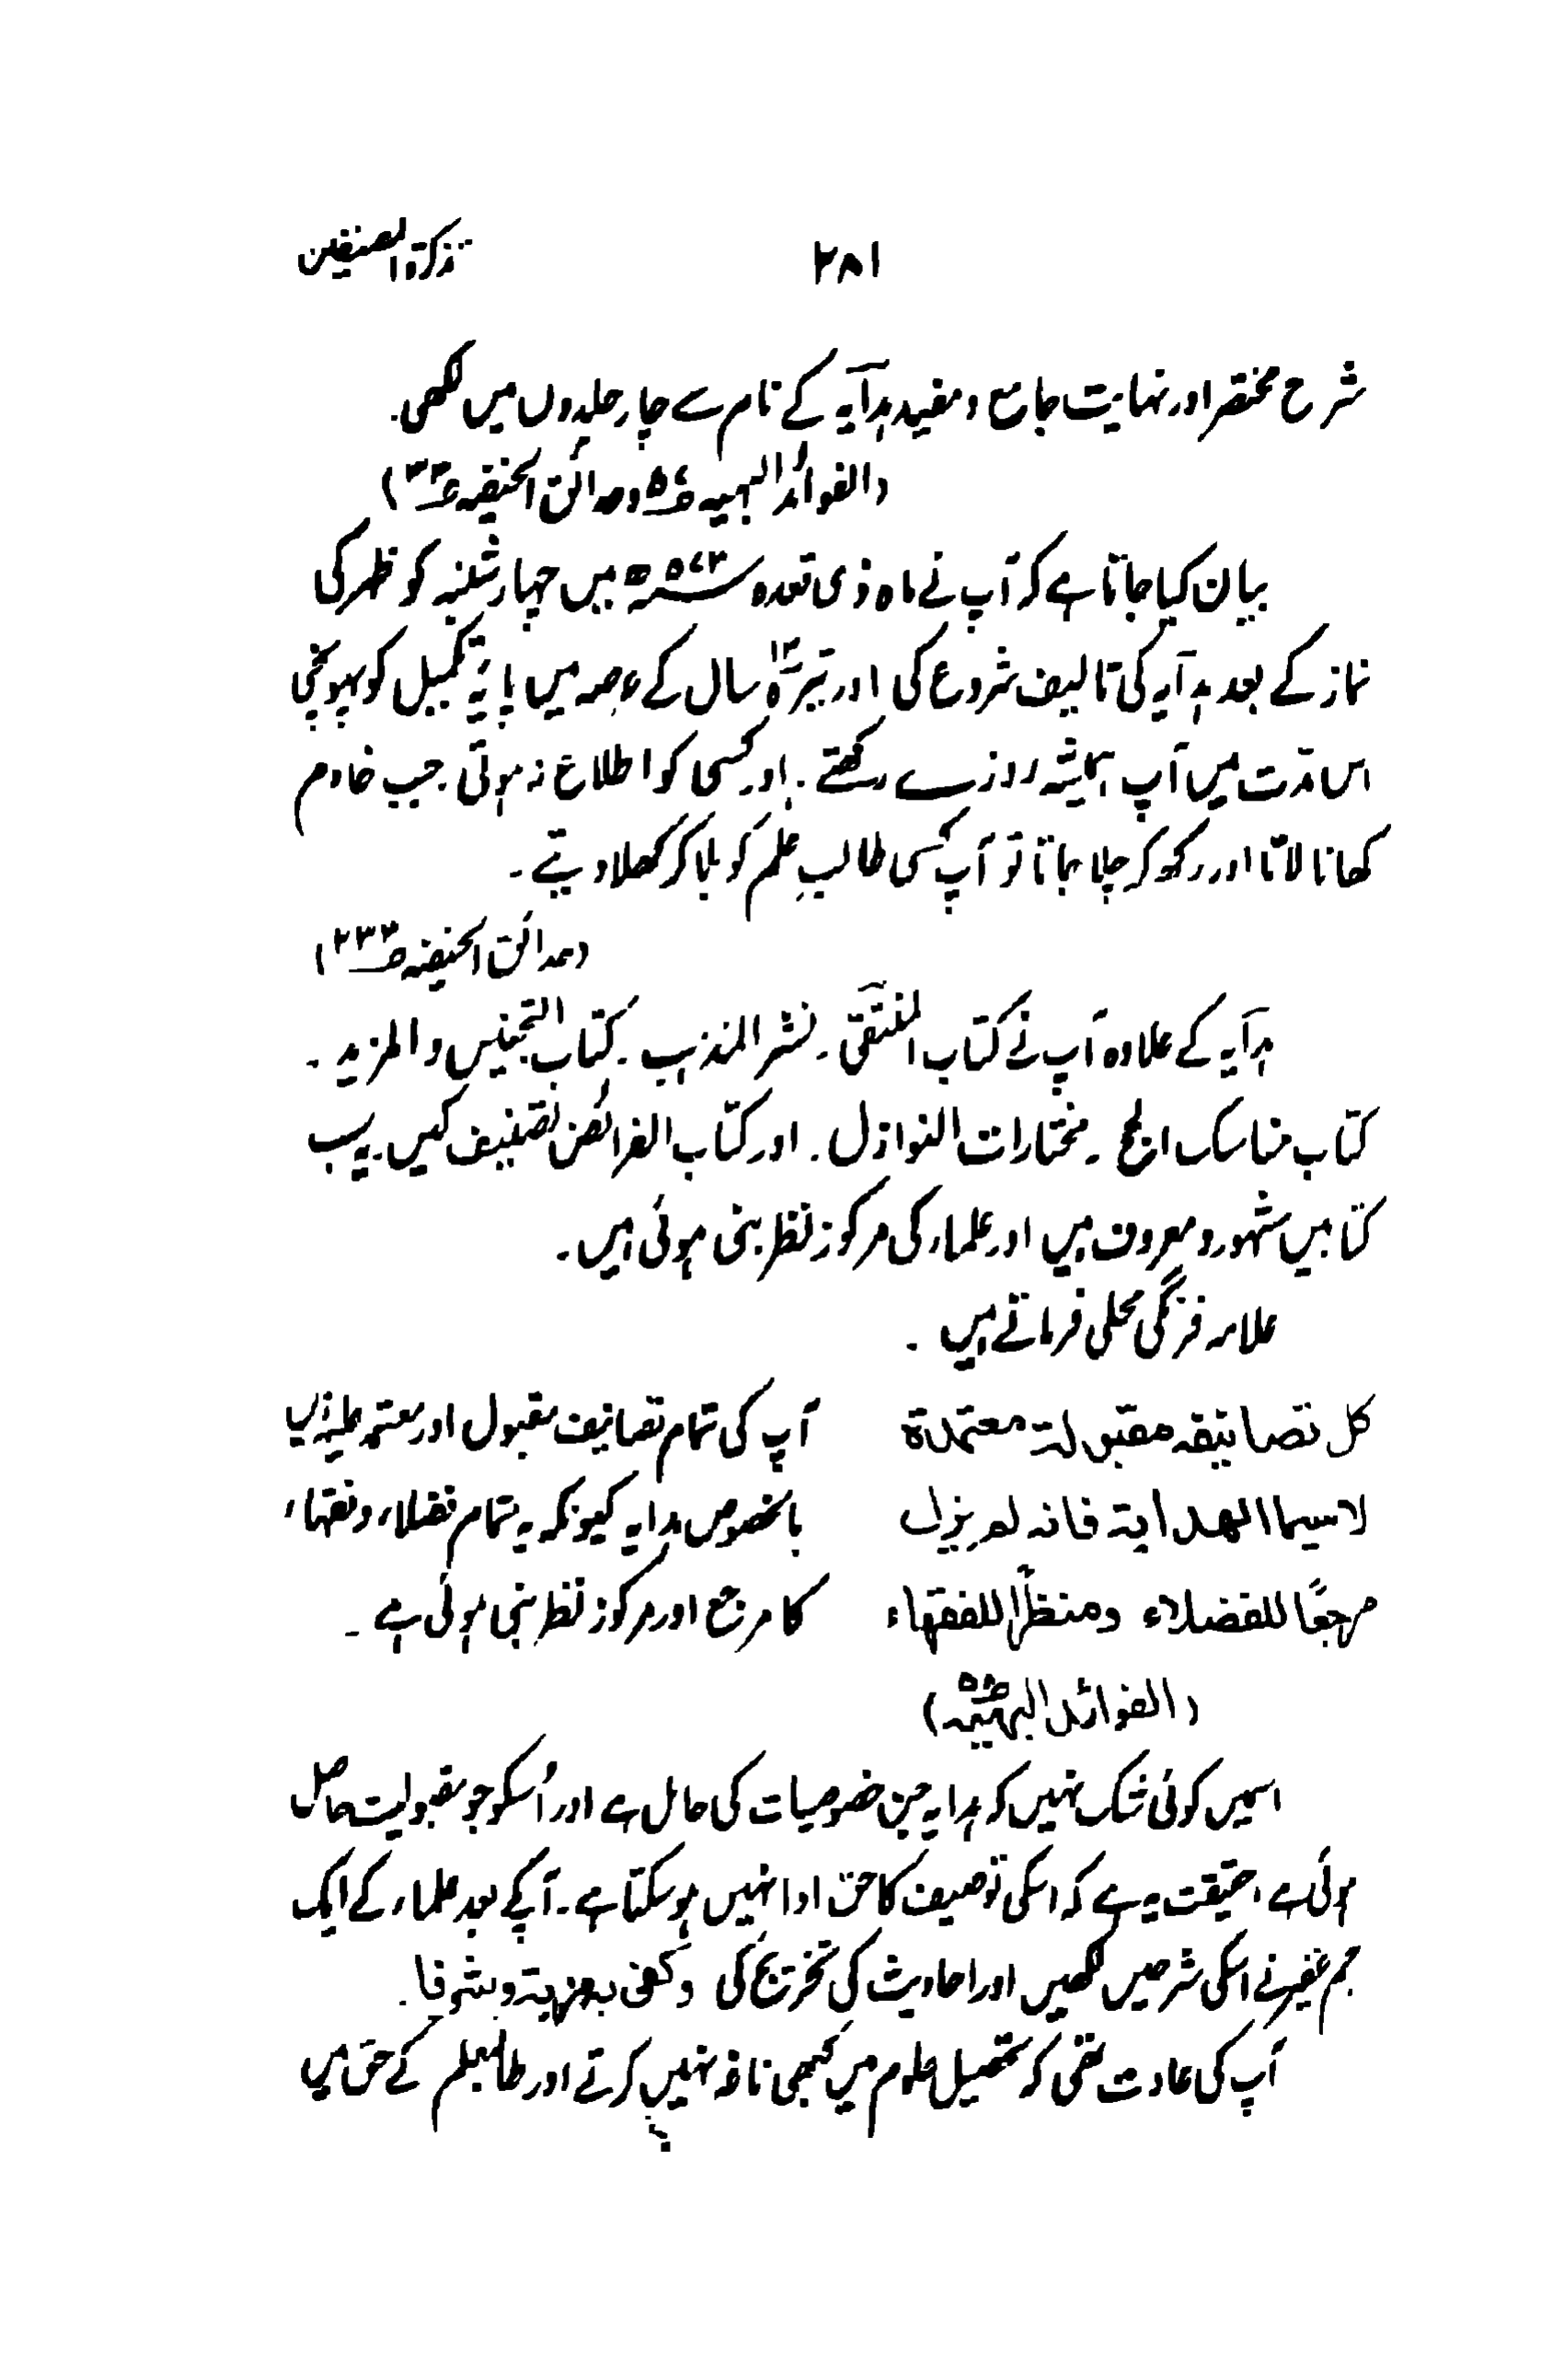 تذکرۃ المصنفین
۲۸۱
شرح مختصر اور نہایت جامع و مفید ہدآیہ کے نام سے چار جلدوں میں لکھی۔
(الفوائد البہیہ و حدائق الحنفیہ)
بیان کیا جاتا ہے کہ آپ نے ماہ ذی قعدہ ۵۷۳ھ میں چہارشنبہ کو ظہر کی
نماز کے بعد ہدآیہ کی تالیف شروع کی اور تیرہ۱۳ سال کے عرصہ میں پایۂ تکمیل کو پہونچی
اس مدت میں آپ ہمیشہ روزے رکھتے۔ اور کسی کو اطلاع نہ ہوتی جب خادم
کھانا لاتا اور رکھ کر چلا جاتا تو آپ کسی طالبِ علم کو بلا کر کھلا دیتے۔
(حدائق الحنفیہ ص۲۳۳)
ہدآیہ کے علاوہ آپ نے کتاب المنتقٰی۔ نشر المذہب۔ کتاب التجنیس والمزید۔
کتاب مناسک الحج۔ مختارات النوازل۔ اور کتاب الفرائض تصنیف کیں۔ یہ سب
کتابیں مشہور و معروف ہیں اور علماء کی مرکوز نظر بنی ہوئی ہیں۔
علامہ فرنگی محلی فرماتے ہیں۔
کل تصانیفہ مقبولۃ معتمدۃ
لا سیما الھدایۃ فانہ لم یزل
مرجعًا للفضلاء ومنظرًا للفقھاء
(الفوائد البہیہ)
آپ کی تمام تصانیف مقبول اور معتمد علیہ ہیں
بالخصوص ہدایہ کیونکہ یہ تمام فضلاء و فقہاء
کا مرجع اور مرکوز نظر بنی ہوئی ہے۔
اسمیں کوئی شک نہیں کہ ہدایہ جن خصوصیات کی حامل ہے اور اُسکو جو مقبولیت حاصل
ہوئی ہے، حقیقت یہ ہے کہ اسکی توصیف کا حق ادا نہیں ہو سکتا ہے۔ آپکے بعد علماء کے ایک
جم غفیر نے اسکی شرحیں لکھیں اور احادیث کی تخریج کی وکفی بہ مزیۃ وشرفا۔
آپ کی عادت تھی کہ تحصیل علوم میں کبھی ناغہ نہیں کرتے اور طالبعلم کے حق میں